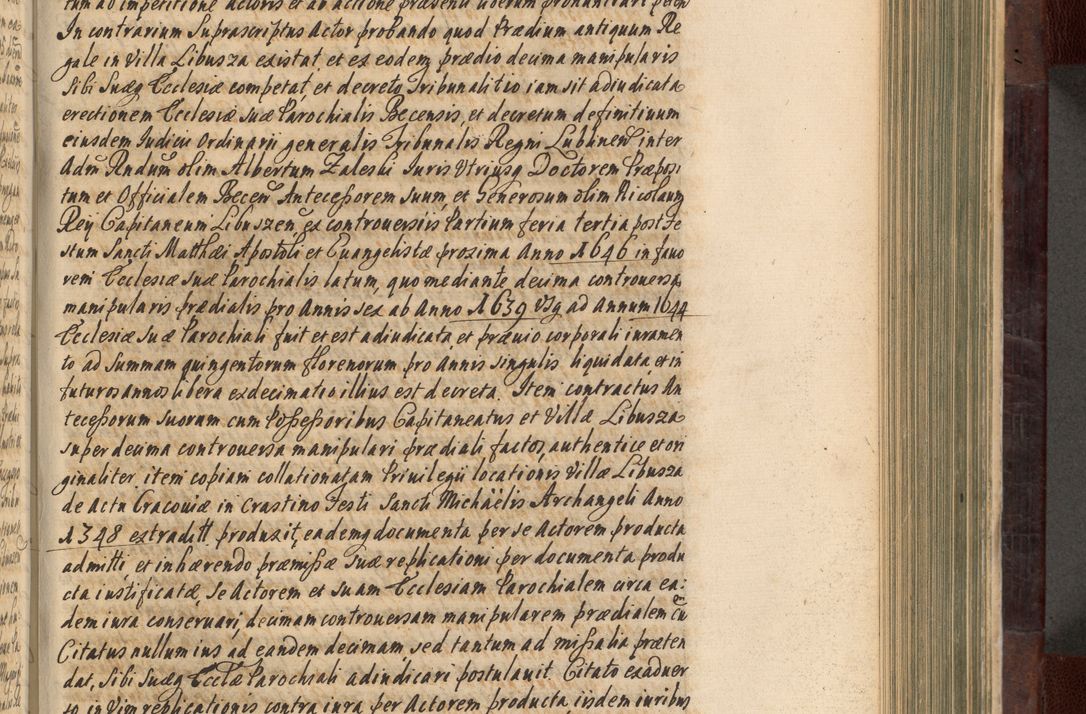 tum ad impetitione Actoris et ab actione præsenti liberum pronunciari peten
In contrarium Suprascriptus Actor probando quod Prædium antiquum Re
gale in Villa Libusza existat et ex eodem prædio decima manipularis
Sibi Suæq Ecclesiæ competat, et decreto Tribunalitio iam sit adiudicata
erectionem Ecclesiæ suæ Parochialis Becensis, et decretum definitiuum
eiusdem Iudicii Ordinarii generalis Tribunalis Regni Lublinen inter
Adm Rndum olim Albertum Zaleski Iuris Vtriusq Doctorem Præposi
tum et Officialem Becen Antecessorem suum, et Generosum olim Nicolaum
Rey Capitaneum Libuszen ex controuersiis Partium feria tertia post Fe
stum Sancti Matthæi Apostoli et Euangelistæ proxima Anno 1646 in fauo
rem Ecclesiæ suæ Parochialis latum, quo mediante decima controuersa
manipularis prædialis pro Annis sex ab Anno 1639 Vsq ad Annum 1644
Ecclesiæ suæ Parochiali fuit et est adiudicata et præuio corporali iuramen
to ad Summam quingentorum florenorum pro Annis singulis liquidata, et in
futuros annos libera exdecimatio illius est decreta. Item contractus An
tecessorum suorum cum Possessoribus Capitaneatus et Villæ Libusza
super decima controuersa manipulari prædiali factos, authentice et ori
ginaliter, item copiam collationatam Priuilegii locationis Villæ Libusza
de Actu Cracouiæ in Crastino Festi Sancti Michäelis Archangeli Anno
1348 extraditt produxit, eademq documenta per se Actorem producta
admitti, et inhærendo præmissæ suæ replicationi per documenta produ
cta iustificatæ, Se Actorem et suam Ecclesiam Parochialem circa ea:
dem iura conseruari, decimam controuersam manipularem prædialem cum
Citatus nullum ius ad eandem decimam, sed tantum ad missalia præten
dat, Sibi Suæq Ecclæ Parochiali adiudicari postulauit. Citato exaduer
so in Vim replicationis contra iura per Actorem producta, iisdem iuribus